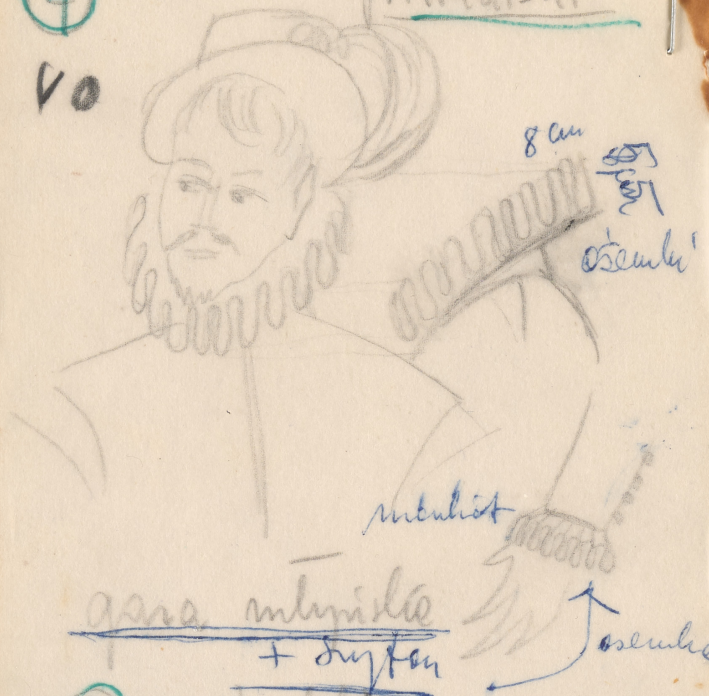 VO
8 cm
ósemki
mankiet
gaza młyńska
+ szyfon
ósemka